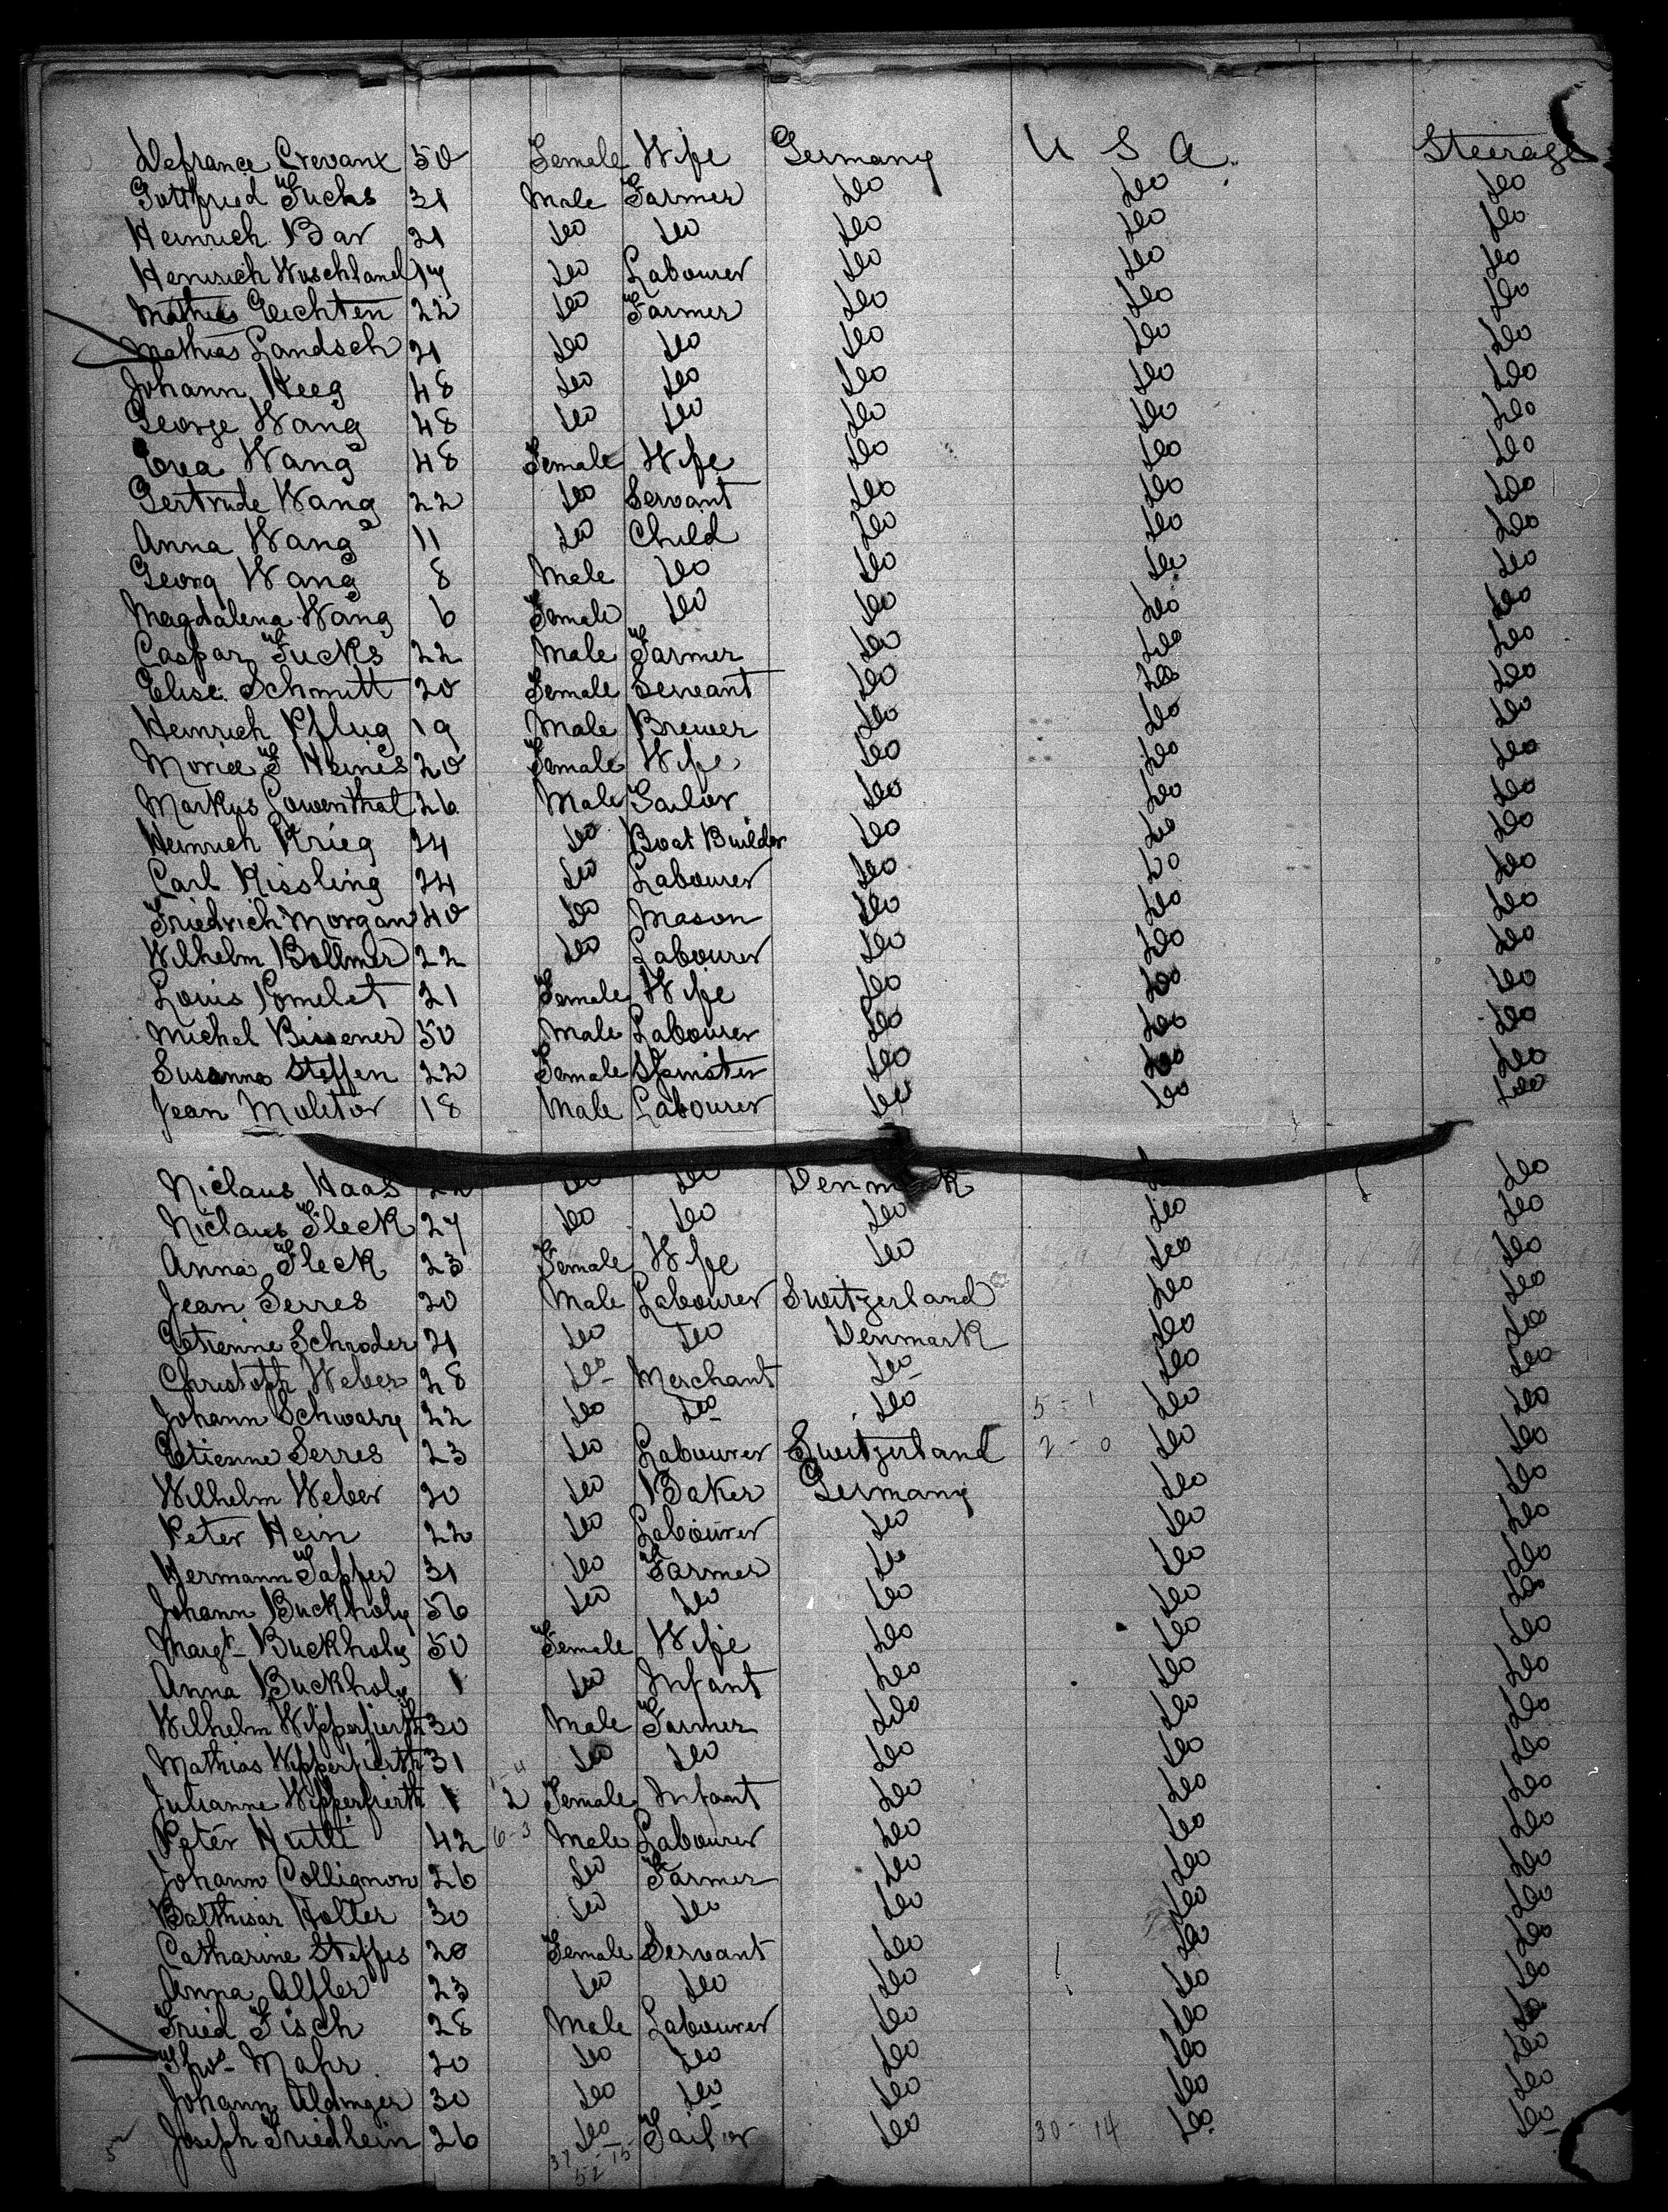 Defrance Crevanx 50 Female Wife Germany U S A. Steerage
Gottfried Fuchs 31 Male Farmer Do Do Do
Heinrich Bar 21 Do Do Do Do Do
Heinrich Waschland 19 Do Labourer Do Do Do
Mathias Geichten 22 Do Farmer Do Do Do
Mathias Landsch 21 Do Do Do Do Do
Johann Keeg 48 Do Do Do Do Do
George Wang 48 Do Do Do Do Do
Eva Wang 48 Female Wife Do Do Do
Gertrude Wang 22 Do Servant Do Do Do
Anna Wang 11 Do Child Do Do Do
Georg Wang 8 Male Do Do Do Do
Magdalena Wang 6 Female Do Do Do Do
Caspar Fucks 22 Male Farmer Do Do Do
Elise Schmitt 20 Female Servant Do Do Do
Heinrich Pflug 19 Male Brewer Do Do Do
F Heines 20 Female Wife Do Do Do
Markus Lowenthal 26 Male Sailor Do Do Do
Heinrich Krieg 24 Do Boat Builder Do Do Do
Carl Kissling 24 Do Labourer Do Do Do
Friedrich Morgan 40 Do Mason Do Do Do
Wilhelm Bollmer 22 Do Labourer Do Do Do
Louis Pomelet 21 Female Wife Do Do Do
Michel Bissener 50 Male Labourer Do Do Do
Susanna Steffen 22 Female Spinster Do Do Do
Jean Molitor 18 Male Labourer Do Do Do
Niclaus Haas 22 Do Do Denmark Do
Niclaus Fleck 27 Do Do Do Do Do
Anna Fleck 23 Female Wife Do Do Do
Jean Serres 20 Male Labourer Switzerland Do Do
Etienne Schroder 21 Do Do Denmark Do Do
Christoph Weber 28 Do Merchant Do Do Do
Johann Schwarz 22 Do Do Do 5-1 Do Do
Etienne Serres 23 Do Labourer Switzerland 2-0 Do Do
Wilhelm Weber 20 Do Baker Germany Do Do
Peter Hein 22 Do Labourer Do Do Do
Hermann Tapper 31 Do Farmer Do Do Do
Johann Buckholz 56 Do Do Do Do Do
Margt Buckholz 50 Female Wife Do Do Do
Anna Buckholz 1 Do Infant Do Do Do
Wilhelm Wipperfierth 30 Male Farmer Do Do Do
Mathias Wipperfierth 31 Do Do Do Do Do
Julianne Wipperfierth 1 2 Female Infant Do Do Do
Peter Hutti 42 6-3 Male Labourer Do Do Do
Johann Collignon 26 Do Farmer Do Do Do
Balthisar Holter 30 Do Do Do Do Do
Catharine Steffes 20 Female Servant Do Do Do
Anna Alfler 23 Do Do Do Do Do
Fried Fisch 28 Male Labourer Do Do Do
Thos Mahr 20 Do Do Do Do Do
Johann Aldinger 30 Do Do Do Do Do
Joseph Friedlein 26 Do Tailor Do 30-14 Do Do